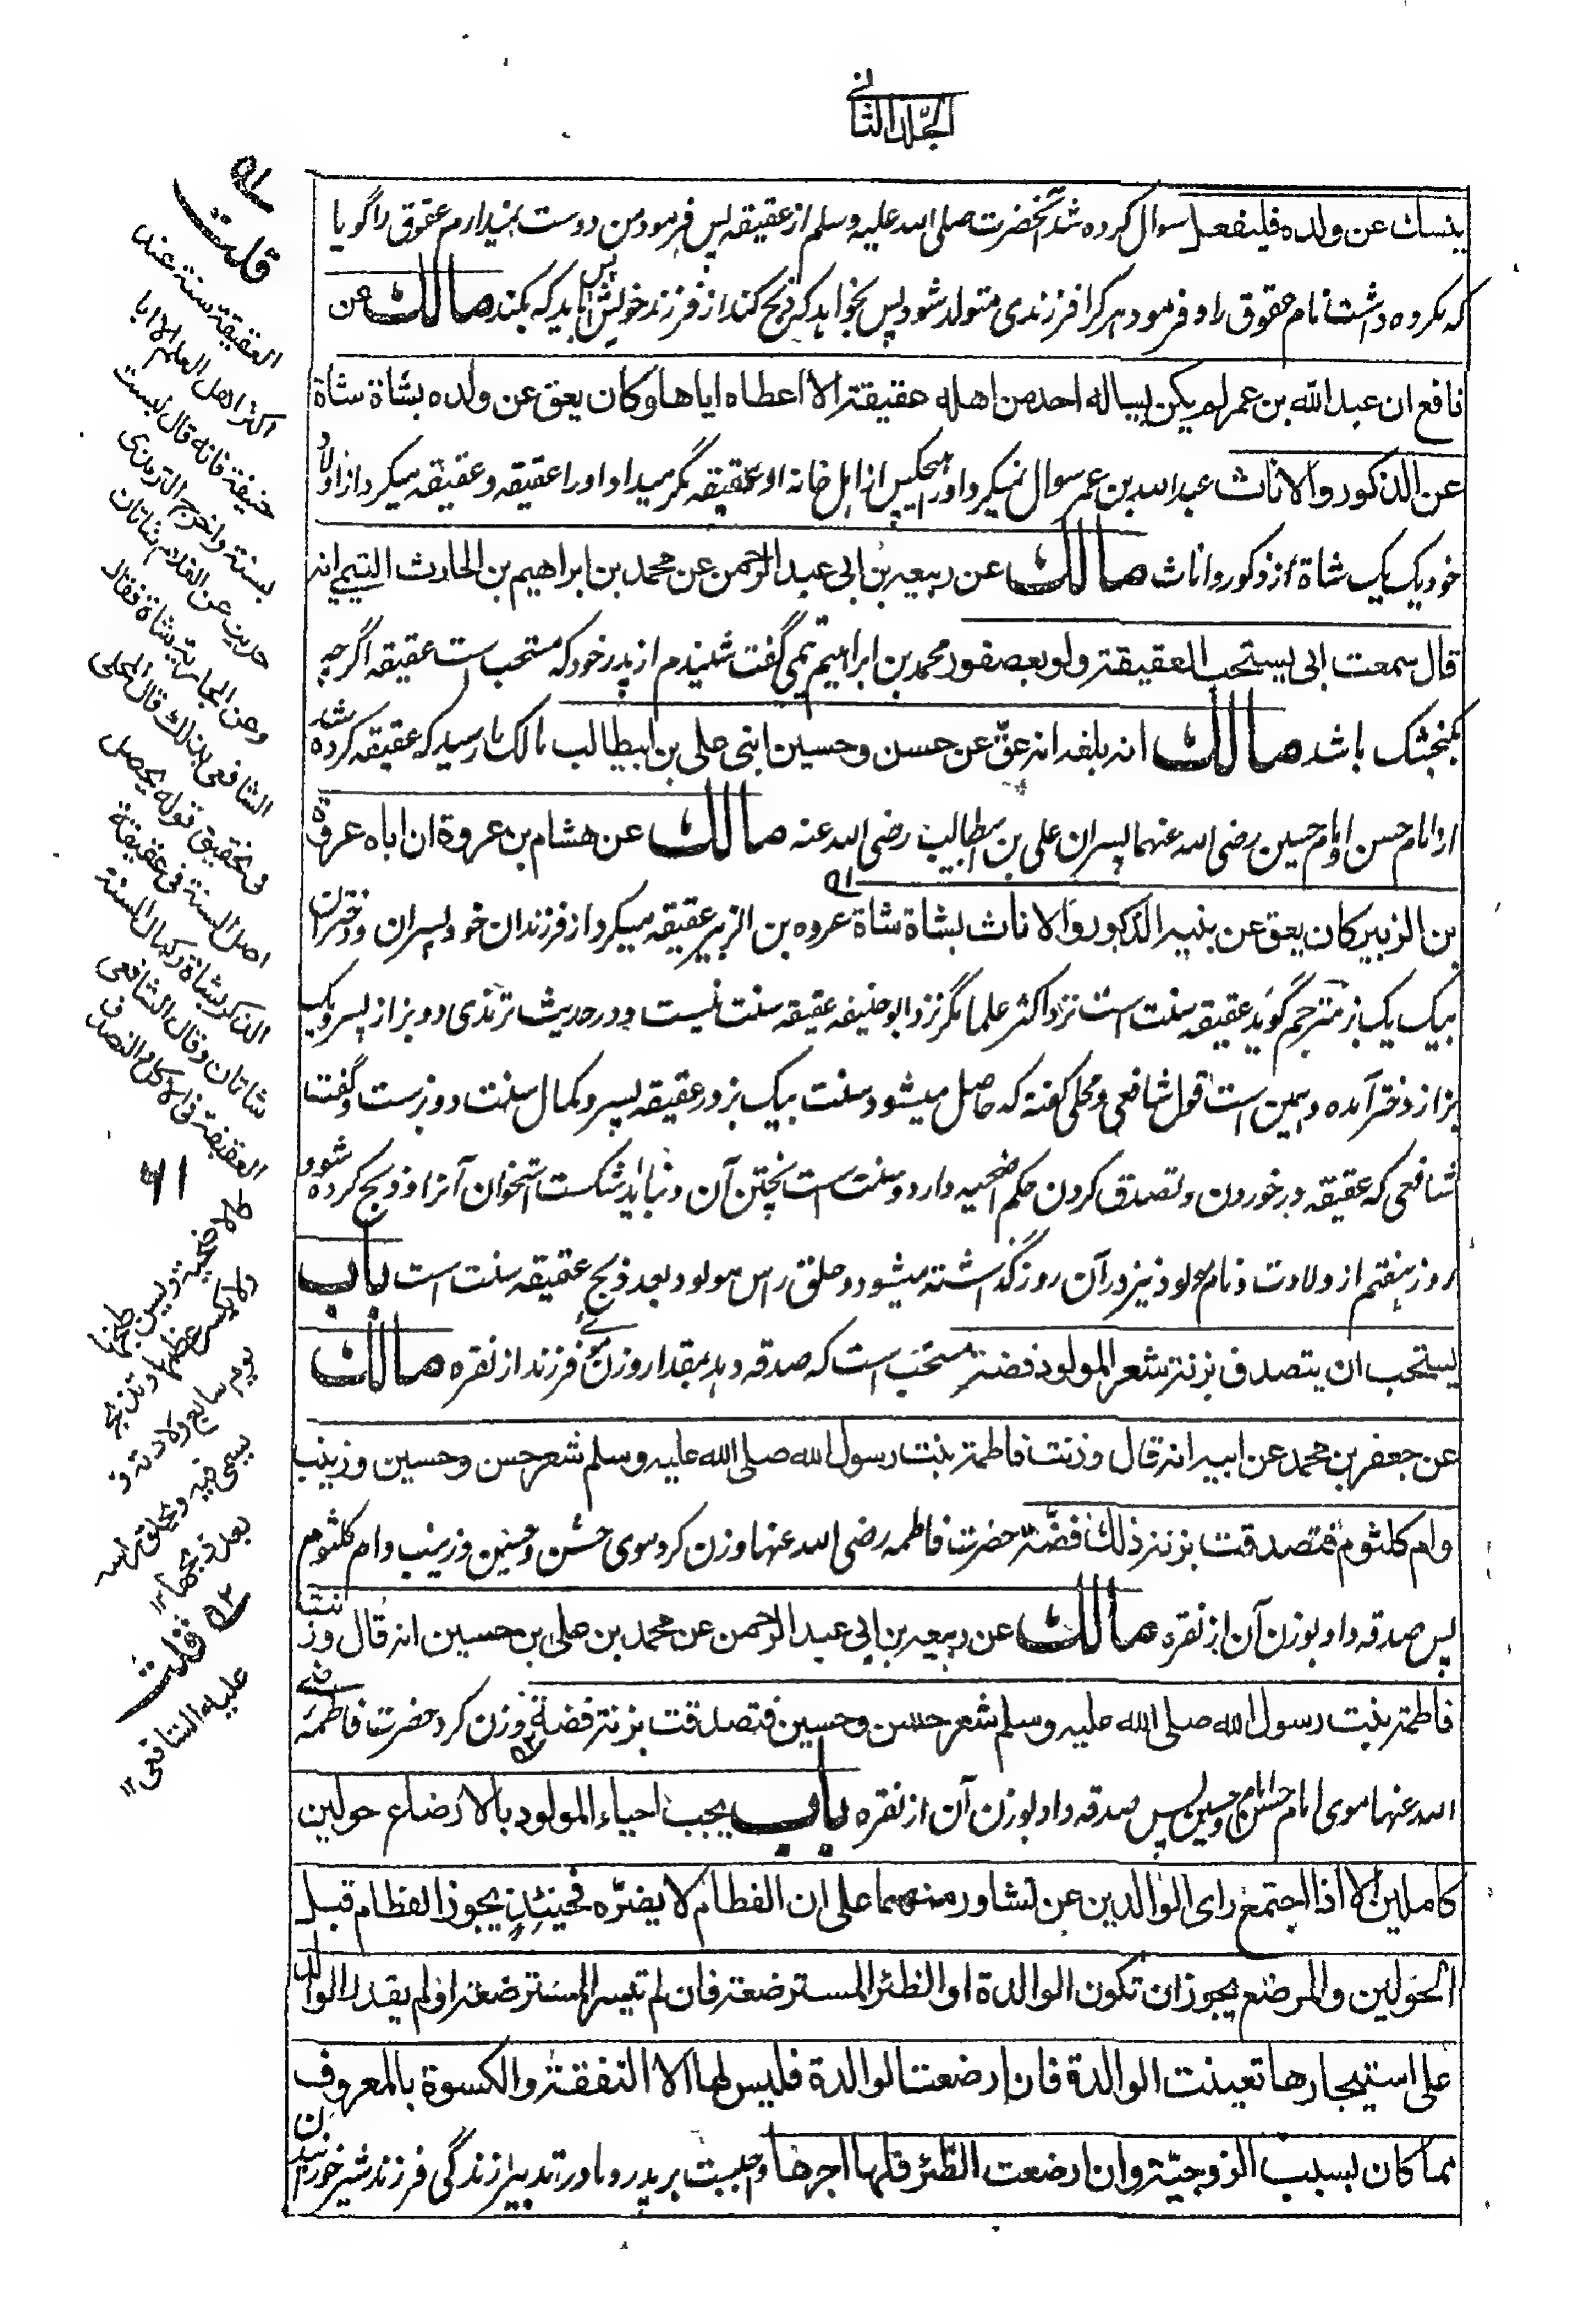 المجلد الثانی
ینسك عن ولده فلیفعل سوال کرده شد آنحضرت صلی الله علیه وسلم از عقیقه پس فرمود من دوست نمیدارم عقوق را گویا
که مکروه داشت نام عقوق را و فرمود هر کرا فرزندی متولد شود پس بخواهد که ذبح کند از فرزند خویش پس باید که بکند مالك عن
نافع ان عبد الله بن عمر لم یکن یساله احد من اهله عقیقة الا اعطاه ایاها وکان یعق عن ولده بشاة شاة
عن الذکور والاناث عبد الله بن عمر سوال نمیکرد او را هیچکس از اهل خانه او عقیقه مگر میداد او را عقیقه و عقیقه میکرد از اولاد
خود یک یک شاة از ذکور و اناث مالك عن ربیعه بن ابی عبد الرحمن عن محمد بن ابراهیم بن الحارث التیمی انه
قال سمعت ابی یستحب العقیقة ولو بعصفور محمد بن ابراهیم تیمی گفت شنیدم از پدر خود که مستحب است عقیقه اگرچه
بکنجشک باشد مالك انه بلغه انه عقّ عن حسن وحسین ابنی علی بن ابیطالب مالک را رسید که عقیقه کرده شد
از امام حسن و امام حسین رضی الله عنهما پسران علی بن ابیطالب رضی الله عنه مالك عن هشام بن عروة ان اباه عروة
بن الزبیر کان یعق عن بنیه الذکور والاناث بشاة شاة عروه بن الزبیر عقیقه میکرد از فرزندان خود پسران و دختران
بیک یک بز مترجم گوید عقیقه سنت است نزد اکثر علما مگر نزد ابو حنیفه عقیقه سنت نیست و در حدیث ترمذی دو بز از پسر و یک
بز از دختر آمده و همین است قول شافعی و محلی گفته که حاصل میشود سنت بیک بز در عقیقه پسر و کمال سنت دو بز ست و گفت
شافعی که عقیقه در خوردن و تصدق کردن حکم اضحیه دارد و سنت است پختن آن و نباید شکست استخوان آنرا و ذبح کرده شود
روز هفتم از ولادت و نام مولود نیز در آن روز گذاشته میشود و حلق راس مولود بعد ذبح عقیقه سنت است باب
یستحب ان یتصدق بزنة شعر المولود فضة مستحب است که صدقه دهد بمقدار وزن موی فرزند از نقره مالك
عن جعفر بن محمد عن ابیه انه قال وزنت فاطمة بنت رسول الله صلی الله علیه وسلم شعر حسن وحسین وزینب
وام کلثوم فتصدقت بزنة ذلك فضّة حضرت فاطمه رضی الله عنها وزن کرد موی حسن و حسین و زینب و ام کلثوم
پس صدقه داد بوزن آن از نقره مالك عن ربیعه بن ابی عبد الرحمن عن محمد بن علی بن حسین انه قال وزنت
فاطمة بنت رسول الله صلی الله علیه وسلم شعر حسن وحسین فتصدقت بزنته فضة وزن کرد حضرت فاطمه رضی
الله عنها موی امام حسن و امام حسین پس صدقه داد بوزن آن از نقره باب یجب احیاء المولود بالارضاع حولین
کاملین الا اذا اجتمع رای الوالدین عن تشاور منهما علی ان الفطام لا یضرّه فحینئذ یجوز الفطام قبل
الحولین والمرضع یجوز ان تکون الوالدة او الظئر المسترضعة فان لم تیسر المسترضعة او لم یقدر الوالد
علی استیجارها تعینت الوالدة فان ارضعت الوالدة فلیس لها الا النفقة والکسوة بالمعروف
مما کان بسبب الزوجیّة وان ارضعت الظئر فلها اجرها واجبست بر پدر و مادر تدبیر زندگی فرزند شیر خورانیدن
۵۱
قلت
العقیقة سنة عند
اکثر اهل العلم الا ابا
حنیفة فانه قال لیست
بسنة واخرج الترمذی
حدیث عن الغلام شاتان
وعن الجاریة بشاة فقال
الشافعی بذلك قال المحلی
فی تحقیق قوله یحصل
اصل السنة فی عقیقة
الذکر بشاة وکمال السنة
شاتان وقال الشافعی
العقیقة فی الاکل والتصدق
۶۱
کالاضحیة ویسن طبخها
ولا یکسر عظمها وتذبح
یوم سابع ولادته و
یسمی فیه ویحلق راسه
بعد ذبحها ۱۲
۵۲ قلت
علیه الشافعی ۱۲